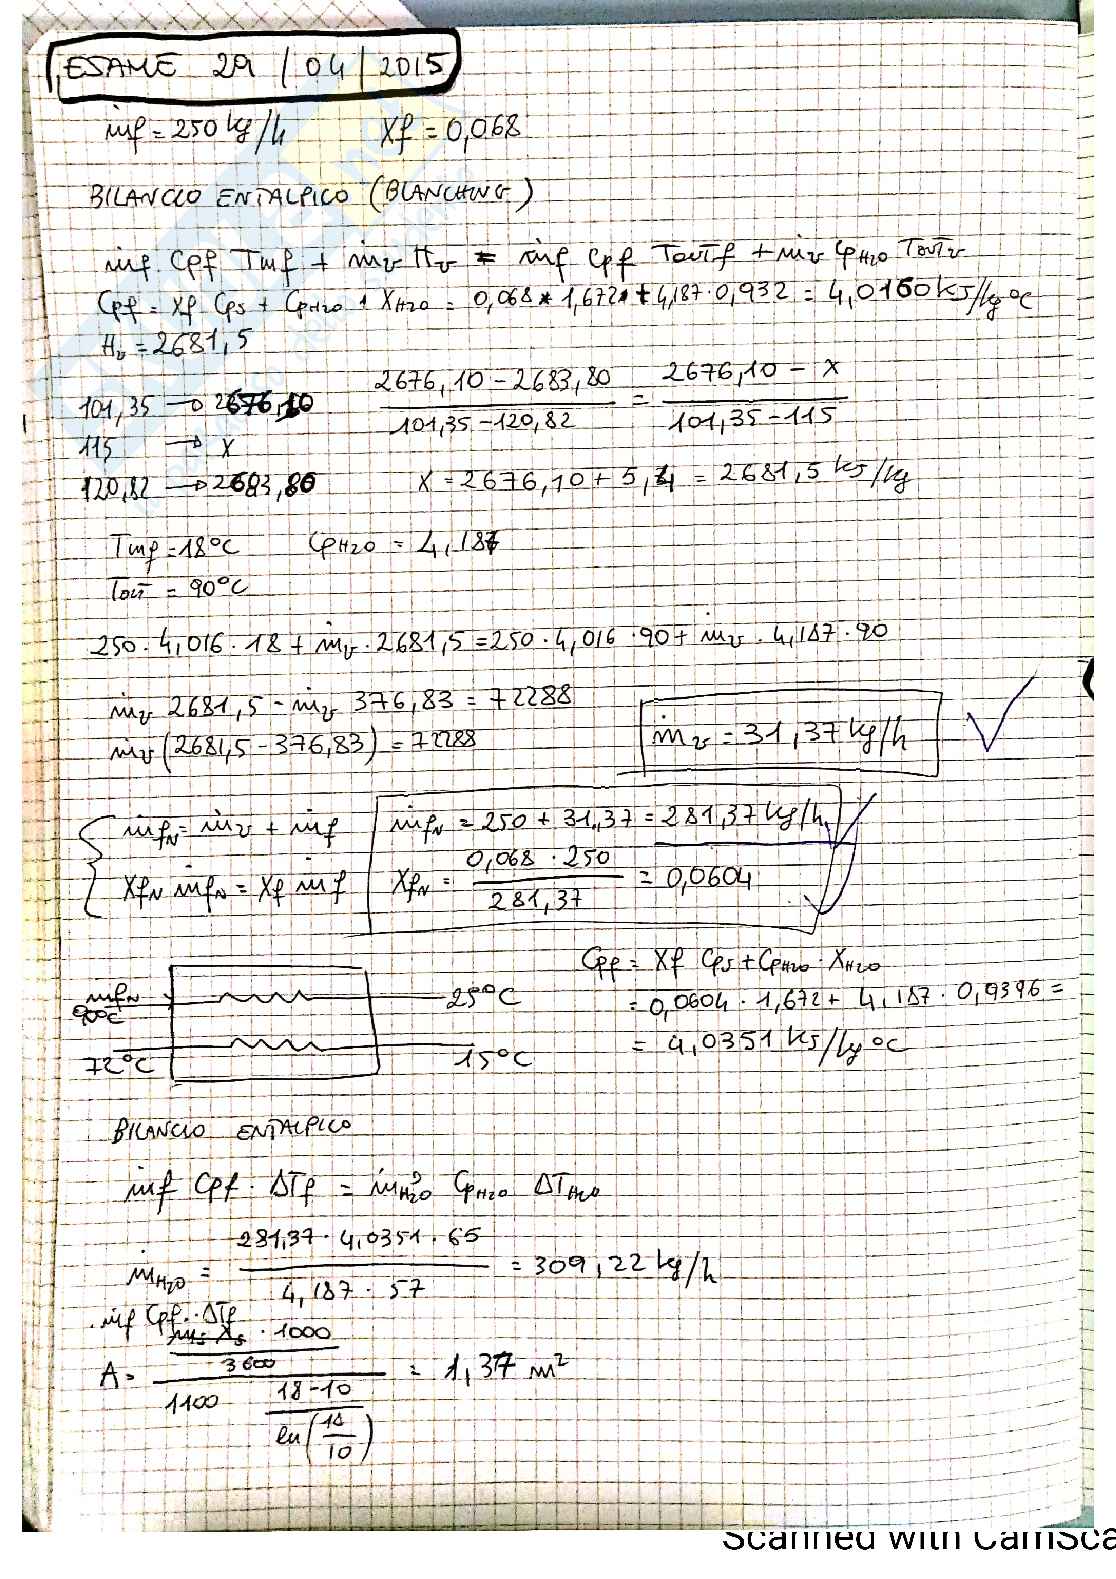 ESAME 29/04/2015
ṁf = 250 kg/h    Xf = 0,068
BILANCIO ENTALPICO (BLANCHING)
ṁf Cpf Tinf + ṁv Hv = ṁf Cpf Toutf + ṁv CpH2O Toutv
Cpf = Xf Cps + CpH2O + XH2O = 0,068 * 1,672 + 4,187 · 0,932 = 4,0160 kJ/kg°C
Hv = 2681,5
101,35 → 2676,10    (2676,10 - 2683,80)/(101,35 - 120,82) = (2676,10 - X)/(101,35 - 115)
115 → X
120,82 → 2683,80    X = 2676,10 + 5,4 = 2681,5 kJ/kg
Tinf = 18°C    CpH2O = 4,187
Tout = 90°C
250 · 4,016 · 18 + ṁv · 2681,5 = 250 · 4,016 · 90 + ṁv · 4,187 · 90
ṁv 2681,5 - ṁv 376,83 = 72288
ṁv (2681,5 - 376,83) = 72288    ṁv = 31,37 kg/h
ṁfN = ṁv + ṁf    ṁfN = 250 + 31,37 = 281,37 kg/h
XfN ṁfN = Xf ṁf    XfN = (0,068 · 250)/281,37 = 0,0604
Cpf = Xf Cps + CpH2O · XH2O
= 0,0604 · 1,672 + 4,187 · 0,9396 =
= 4,0351 kJ/kg°C
ṁfN 90°C    25°C
72°C    15°C
BILANCIO ENTALPICO
ṁf Cpf · ΔTf = ṁH2O CpH2O ΔTH2O
ṁH2O = (281,37 · 4,0351 · 65)/(4,187 · 57) = 309,22 kg/h
ṁf Cpf · ΔTf
A = (· 1000/3600)/(1100 (18-10)/ln(18/10)) = 1,37 m²
Scanned with CamSca